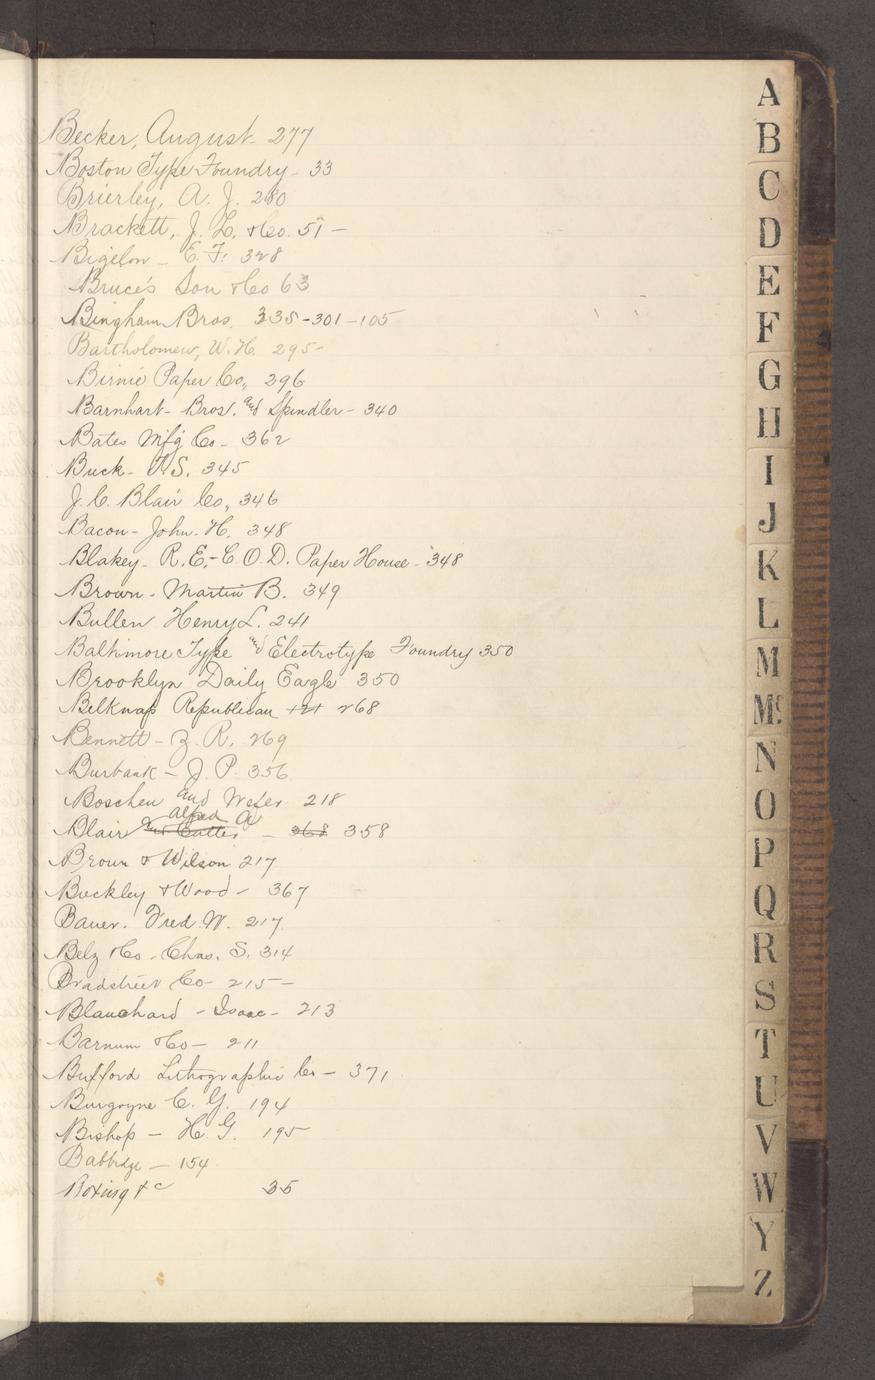 Becker, August - 277
Boston Type Foundry - 33
Brierley, A. J. 280
Brackett, J. L. & Co. 51 -
Bigelow - E. F. 328
Bruce's Son & Co 63
Bingham Bros. 335-301-105
Bartholomew, W. H. 295-
Birnie Paper Co., 296
Barnhart - Bros. and Spindler - 340
Bates Mfg Co - 362
Buck - S. 345
J. C. Blair Co, 346
Bacon - John. H. 348
Blakey - R. E. - C. O. D. Paper House - 348
Brown - Martin B. 349
Bullen Henry L. 241
Baltimore Type and Electrotype Foundry 350
Brooklyn Daily Eagle 350
Belknap Republican 268
Bennett - Z. R. 269
Burbank - J. P. 356
Boschen and Wefer 218
Blair Alfred A - 368 358
Brown & Wilson 217
Buckley & Wood - 367
Bauer. Fred. W. 217
Belz & Co - Chas. S. 314
Bradstreet Co - 215 -
Blanchard - Isaac - 213
Barnum & Co - 211
Bufford Lithographic Co - 371
Burgoyne C. G. 194
Bishop - H. G. 195-
Babbidge - 154
Boxing &c 35
A
B
C
D
E
F
G
H
I
J
K
L
M
Mc.
N
O
P
Q
R
S
T
U
V
W
Y
Z